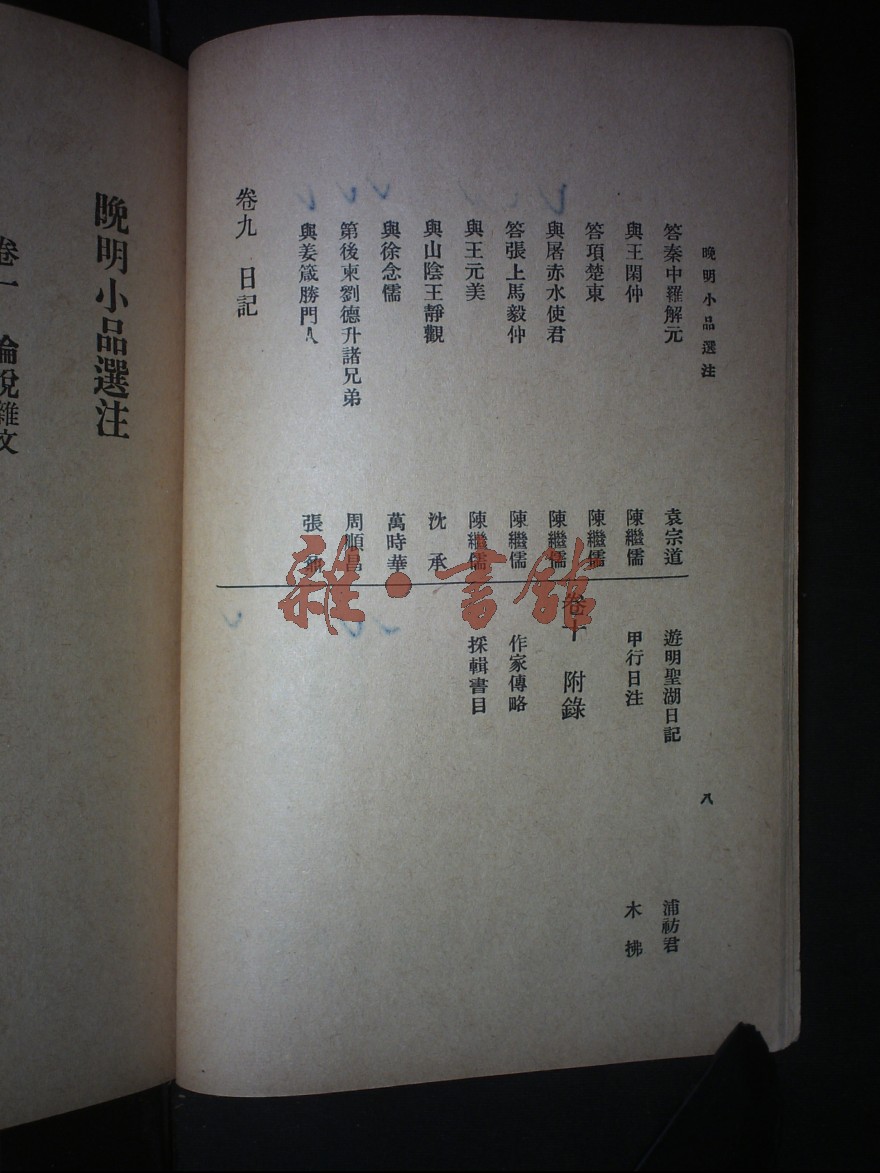 晚明小品選注
答秦中羅解元 袁宗道
與王閑仲 陳繼儒
答項楚東 陳繼儒
與屠赤水使君 陳繼儒
答張上馬毅仲 陳繼儒
與王元美 陳繼儒
與山陰王靜觀 沈承
與徐念儒 萬時華
第後柬劉德升諸兄弟 周順昌
與姜箴勝門人 張鼐
卷九 日記
遊明聖湖日記 浦祊君
甲行日注 木拂
卷十 附錄
作家傳略
採輯書目
八
晚明小品選注
卷一 論說雜文
雜·書館